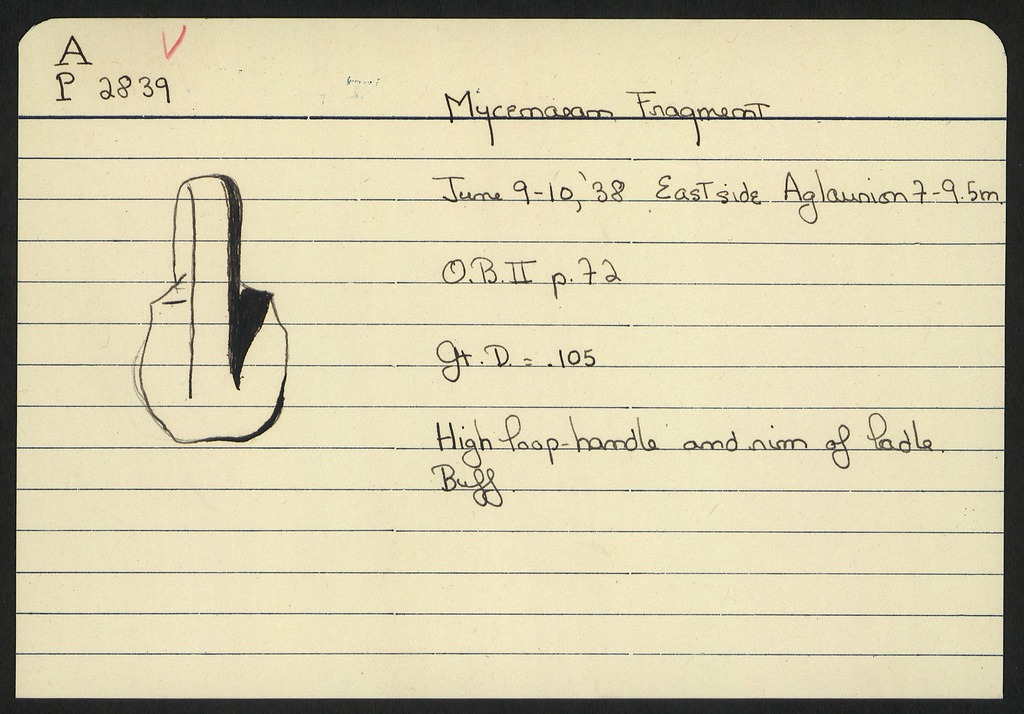 A
P 2839
Mycenaean Fragment
June 9-10, '38 East side Aglaurion 7-9.5m
O.B.II p.72
Gt. D. = .105
High loop-handle and rim of ladle.
Buff.